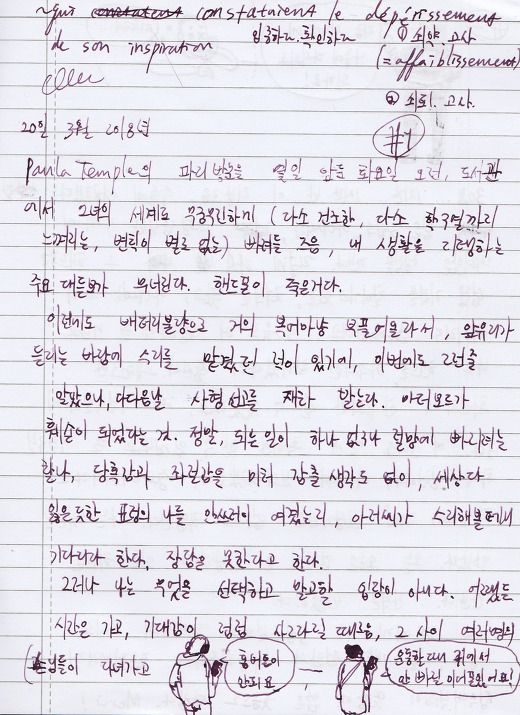 ~qui constataient le dépérissement
de son inspiration
입증하다. 확인하다
① 쇠약. 고사
(=affaiblissement)
② 쇠퇴. 고사.
20일 3월 2018년
#1
Paula Temple의 파리 방문을 열일 앞둔 화요일 오전, 도서관
에서 그녀의 세계로 무궁무진하게 (다소 건조한, 다소
느껴지는, 변덕이 별로 없는) 빠져들 즈음, 내 생활을 지탱하는
주요 대들보가 무너진다. 핸드폰이 죽은거다.
이전에도 배터리불량으로 거의 복어마냥 부풀어올라서, 앞유리가
들리는 바람에 수리를 맡겼던 적이 있기에, 이번에도 그런줄
알았으나, 다다음날 사형선고를 재차 받는다. 마더보드가
훼손이 되었다는 것. 정말, 되는일이 하나 없구나 절망에 빠지려는
찰나, 당혹감과 좌절감을 미처 감출 생각도 없이, 세상 다
잃은듯한 표정의 나를 안쓰러이 여겼는지, 아저씨가 수리해볼테니
기다리라 한다, 장담은 못한다고 한다.
그러나 나는 무엇을 선택하고 말고할 입장이 아니다. 어쨌든
시간은 가고, 기대감이 점점 사그라질 때즈음, 그 사이 여러명의
손님들이 다녀가고
충전이
안돼요
운동할때 귀에서
안 빠질 이어폰있어요!